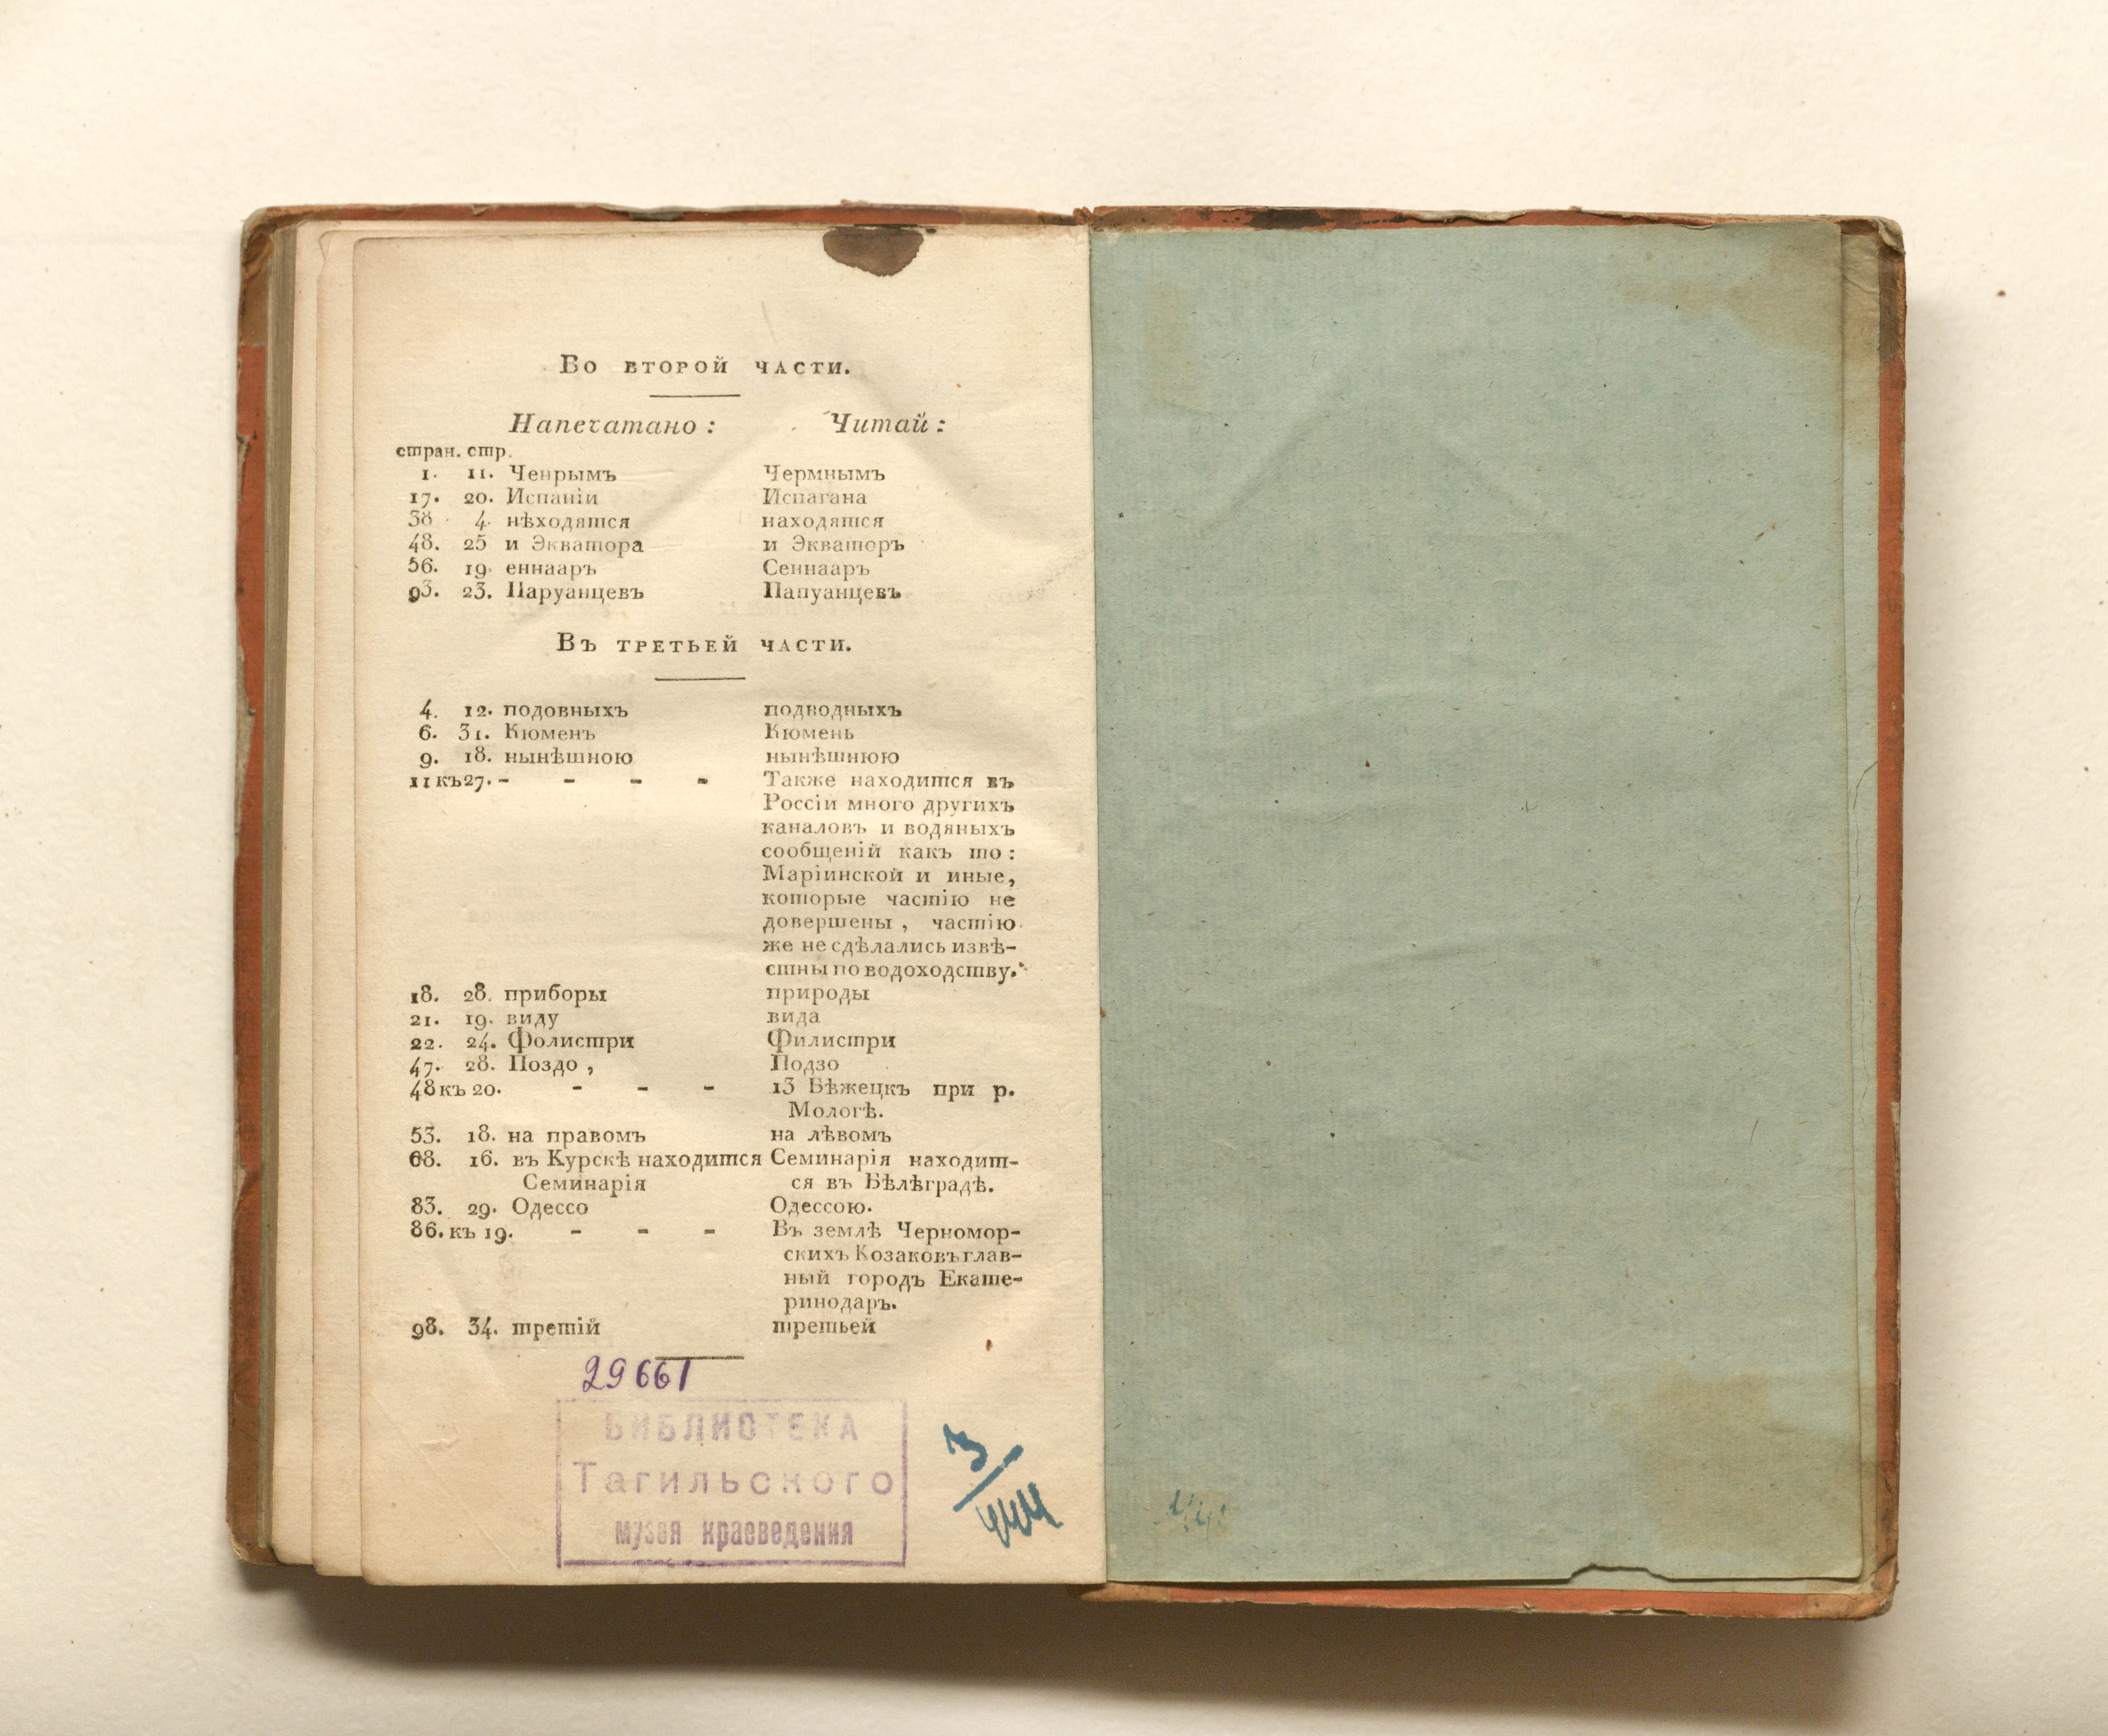 Во второй части.
Напечатано: Читай:
стран. стр.
1. 11. Ченрымъ Чермнымъ
17. 20. Испаніи Испагана
38 4. нѣходятся находятся
48. 25 и Экватора и Экваторъ
56. 19. еннааръ Сеннааръ
93. 23. Паруанцевъ Папуанцевъ
Въ третьей части.
4. 12. подовныхъ подводныхъ
6. 31. Кюменъ Кюмень
9. 18. нынѣшною нынѣшнюю
11 къ 27. - - - - Также находится въ
Россіи много другихъ
каналовъ и водяныхъ
сообщеній какъ то:
Маріинской и иные,
которые частію не
довершены, частію
же не сдѣлались извѣ-
стны по водоходству.
18. 28. приборы природы
21. 19. виду вида
22. 24. Фолистри Филистри
47. 28. Поздо, Подзо
48 къ 20. - - - 13 Бѣжецкъ при р.
Мологѣ.
53. 18. на правомъ на лѣвомъ
68. 16. въ Курскѣ находится Семинарія находит-
Семинарія ся въ Бѣлѣградѣ.
83. 29. Одессо Одессою.
86. къ 19. - - - Въ землѣ Черномор-
скихъ Козаковъ глав-
ный городъ Екате-
ринодаръ.
98. 34. третій третьей
29661
БИБЛИОТЕКА
Тагильского
музея краеведения
3